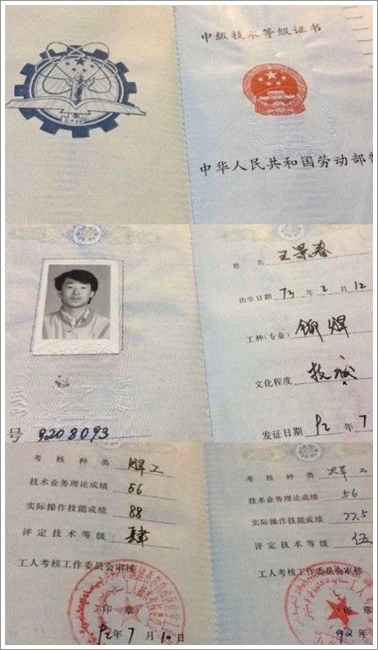 中级技术等级证书
中华人民共和国劳动部
姓 名 王景春
出生日期 73 年 2 月 12
工种(专业) 铆焊
文化程度 技
号 9208093
发证日期 92 年 7
考 核 种 类 焊工
技术业务理论成绩 56
实际操作技能成绩 88
评 定 技 术 等 级 肆
工人考核工作委员会审核
印 章
92 年 7 月 10 日
考 核 种 类 焊工
技术业务理论成绩 56
实际操作技能成绩 77.5
评 定 技 术 等 级 伍
工人考核工作委员会审核
印 章
92 年